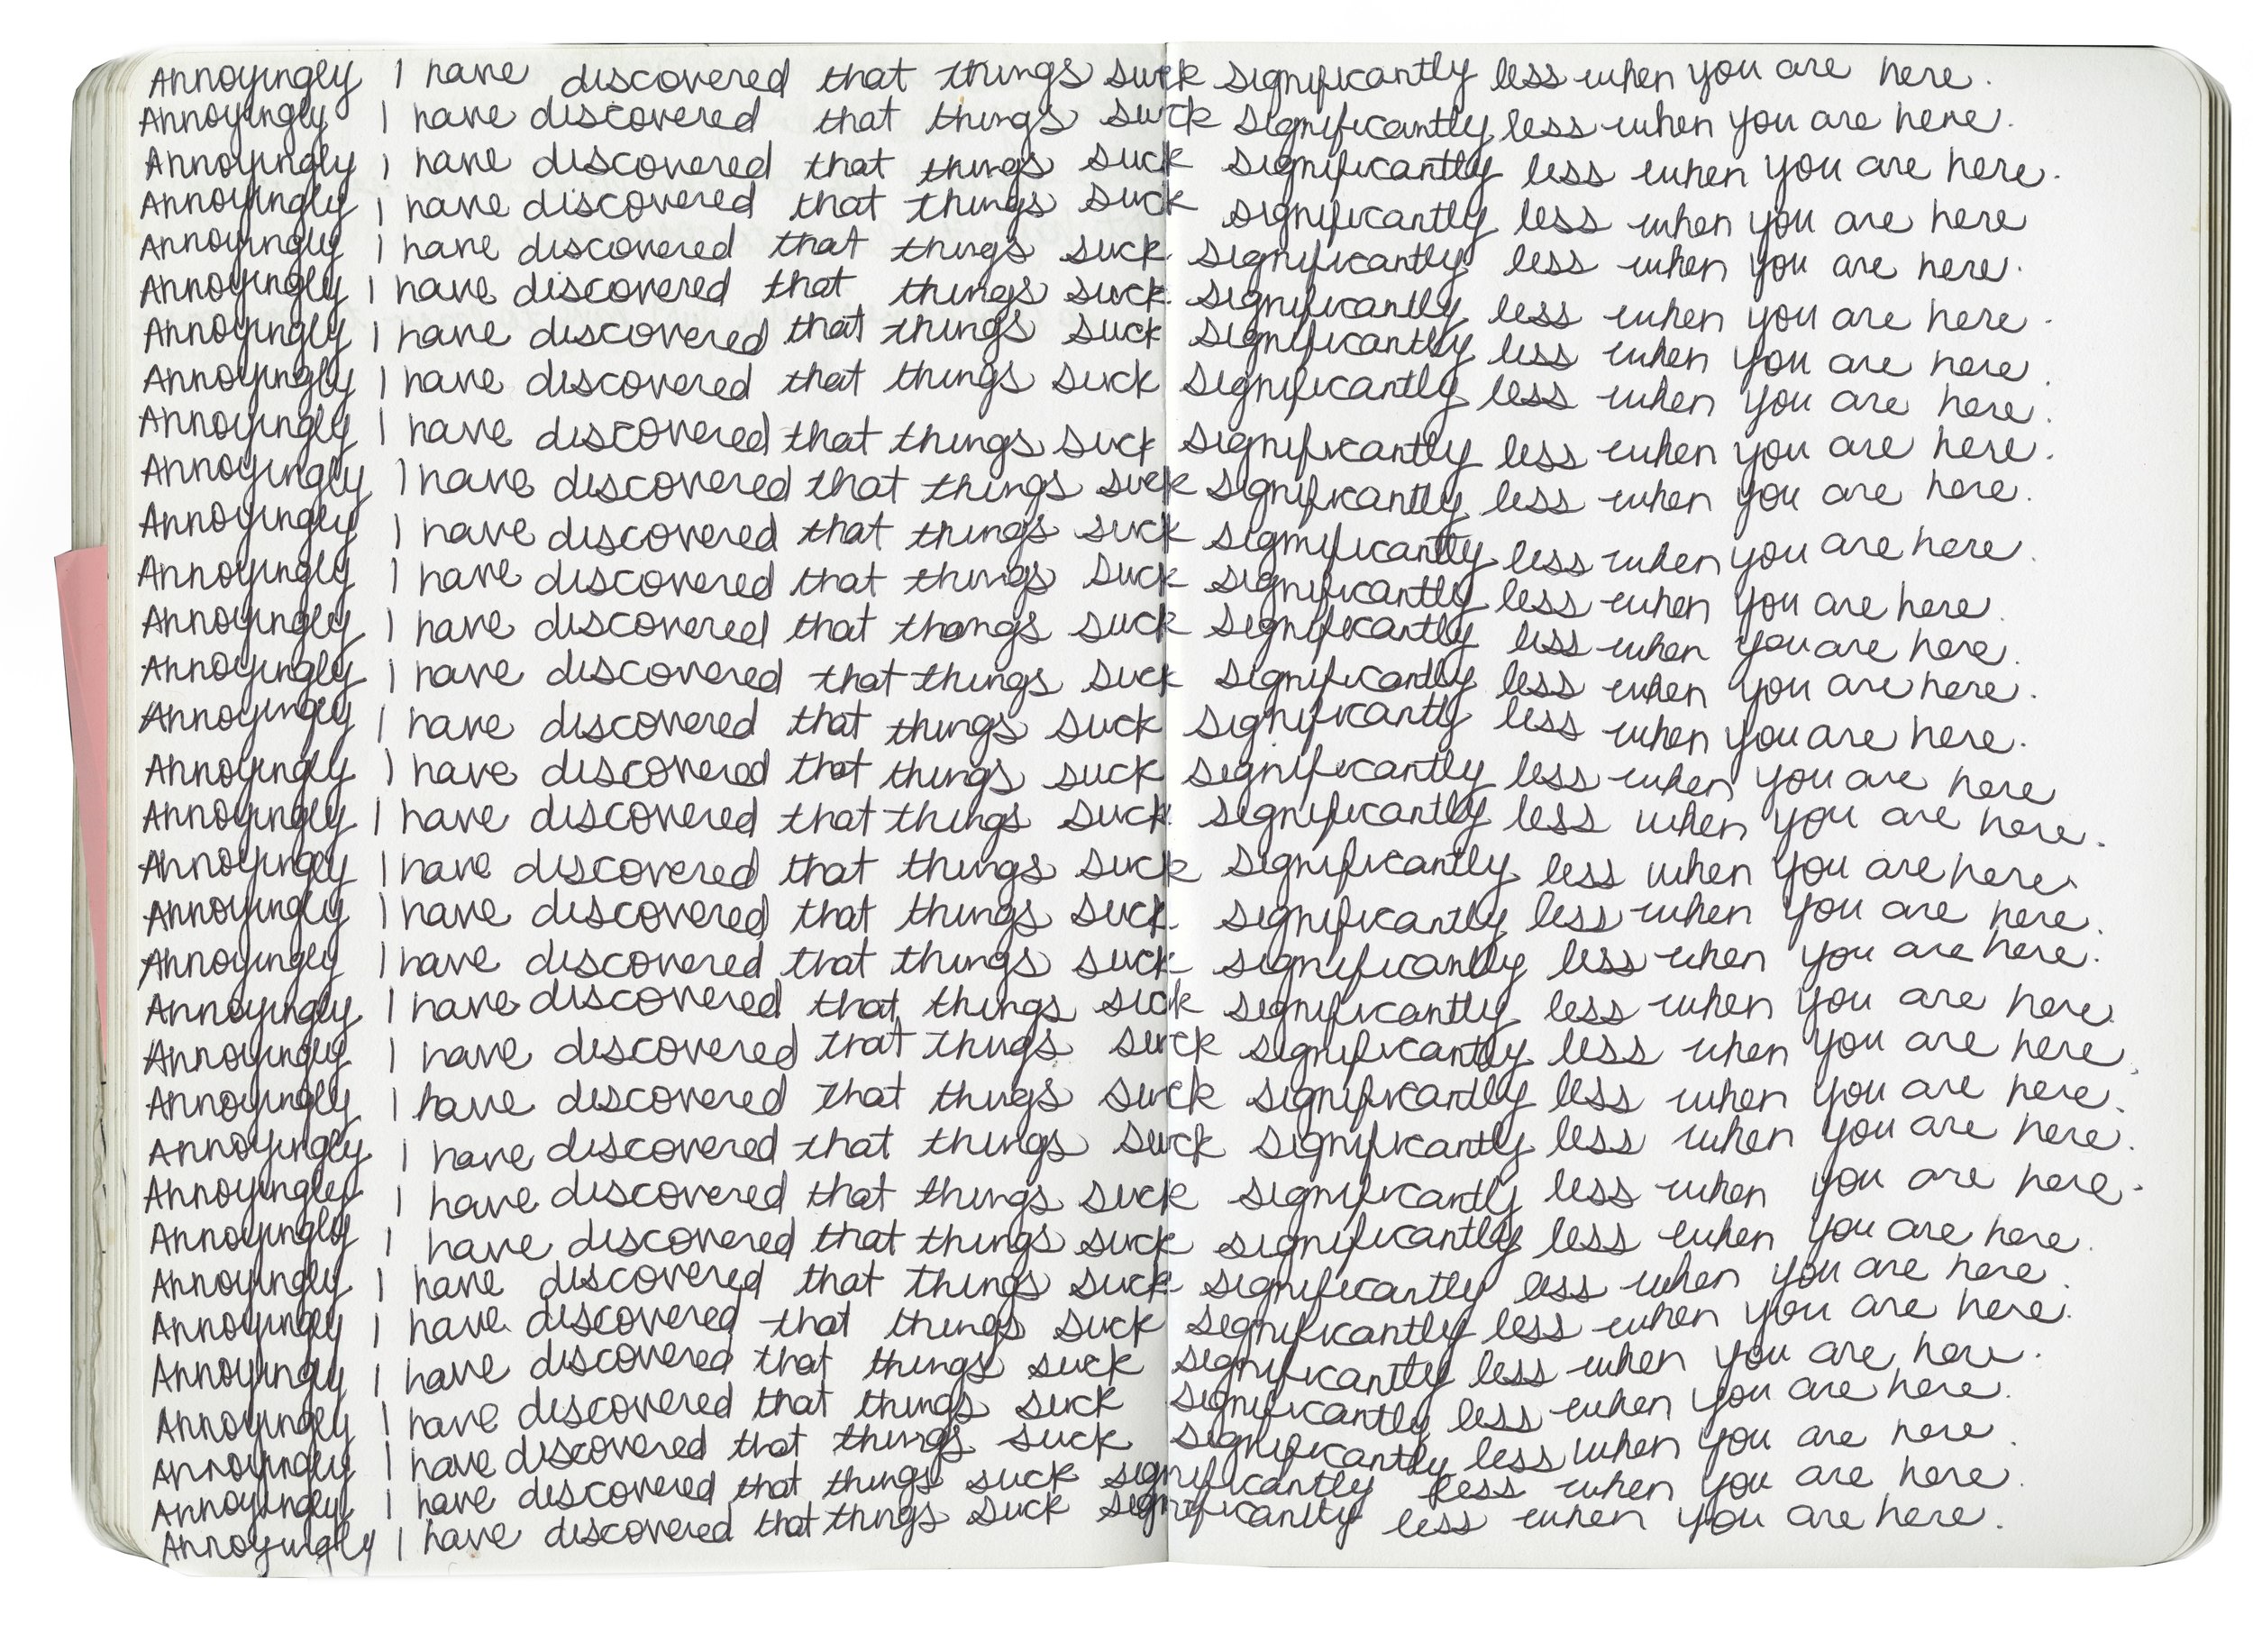 Annoyingly I have discovered that things suck significantly less when you are here.
Annoyingly I have discovered that things suck significantly less when you are here.
Annoyingly I have discovered that things suck significantly less when you are here.
Annoyingly I have discovered that things suck significantly less when you are here
Annoyingly I have discovered that things suck significantly less when you are here.
Annoyingly I have discovered that things suck significantly less when you are here.
Annoyingly I have discovered that things suck significantly less when you are here.
Annoyingly I have discovered that things suck significantly less when you are here.
Annoyingly I have discovered that things suck significantly less when you are here.
Annoyingly I have discovered that things suck significantly less when you are here.
Annoyingly I have discovered that things suck significantly less when you are here.
Annoyingly I have discovered that things suck significantly less when you are here.
Annoyingly I have discovered that things suck significantly less when you are here.
Annoyingly I have discovered that things suck significantly less when you are here.
Annoyingly I have discovered that things suck significantly less when you are here.
Annoyingly I have discovered that things suck significantly less when you are here
Annoyingly I have discovered that things suck significantly less when you are here.
Annoyingly I have discovered that things suck significantly less when you are here.
Annoyingly I have discovered that things suck significantly less when you are here.
Annoyingly I have discovered that things suck significantly less when you are here.
Annoyingly I have discovered that things suck significantly less when you are here.
Annoyingly I have discovered that things suck significantly less when you are here.
Annoyingly I have discovered that things suck significantly less when you are here.
Annoyingly I have discovered that things suck significantly less when you are here.
Annoyingly I have discovered that things suck significantly less when you are here.
Annoyingly I have discovered that things suck significantly less when you are here.
Annoyingly I have discovered that things suck significantly less when you are here.
Annoyingly I have discovered that things suck significantly less when you are here.
Annoyingly I have discovered that things suck significantly less when you are here.
Annoyingly I have discovered that things suck significantly less when you are here.
Annoyingly I have discovered that things suck significantly less when you are here.
Annoyingly I have discovered that things suck significantly less when you are here.
Annoyingly I have discovered that things suck significantly less when you are here.